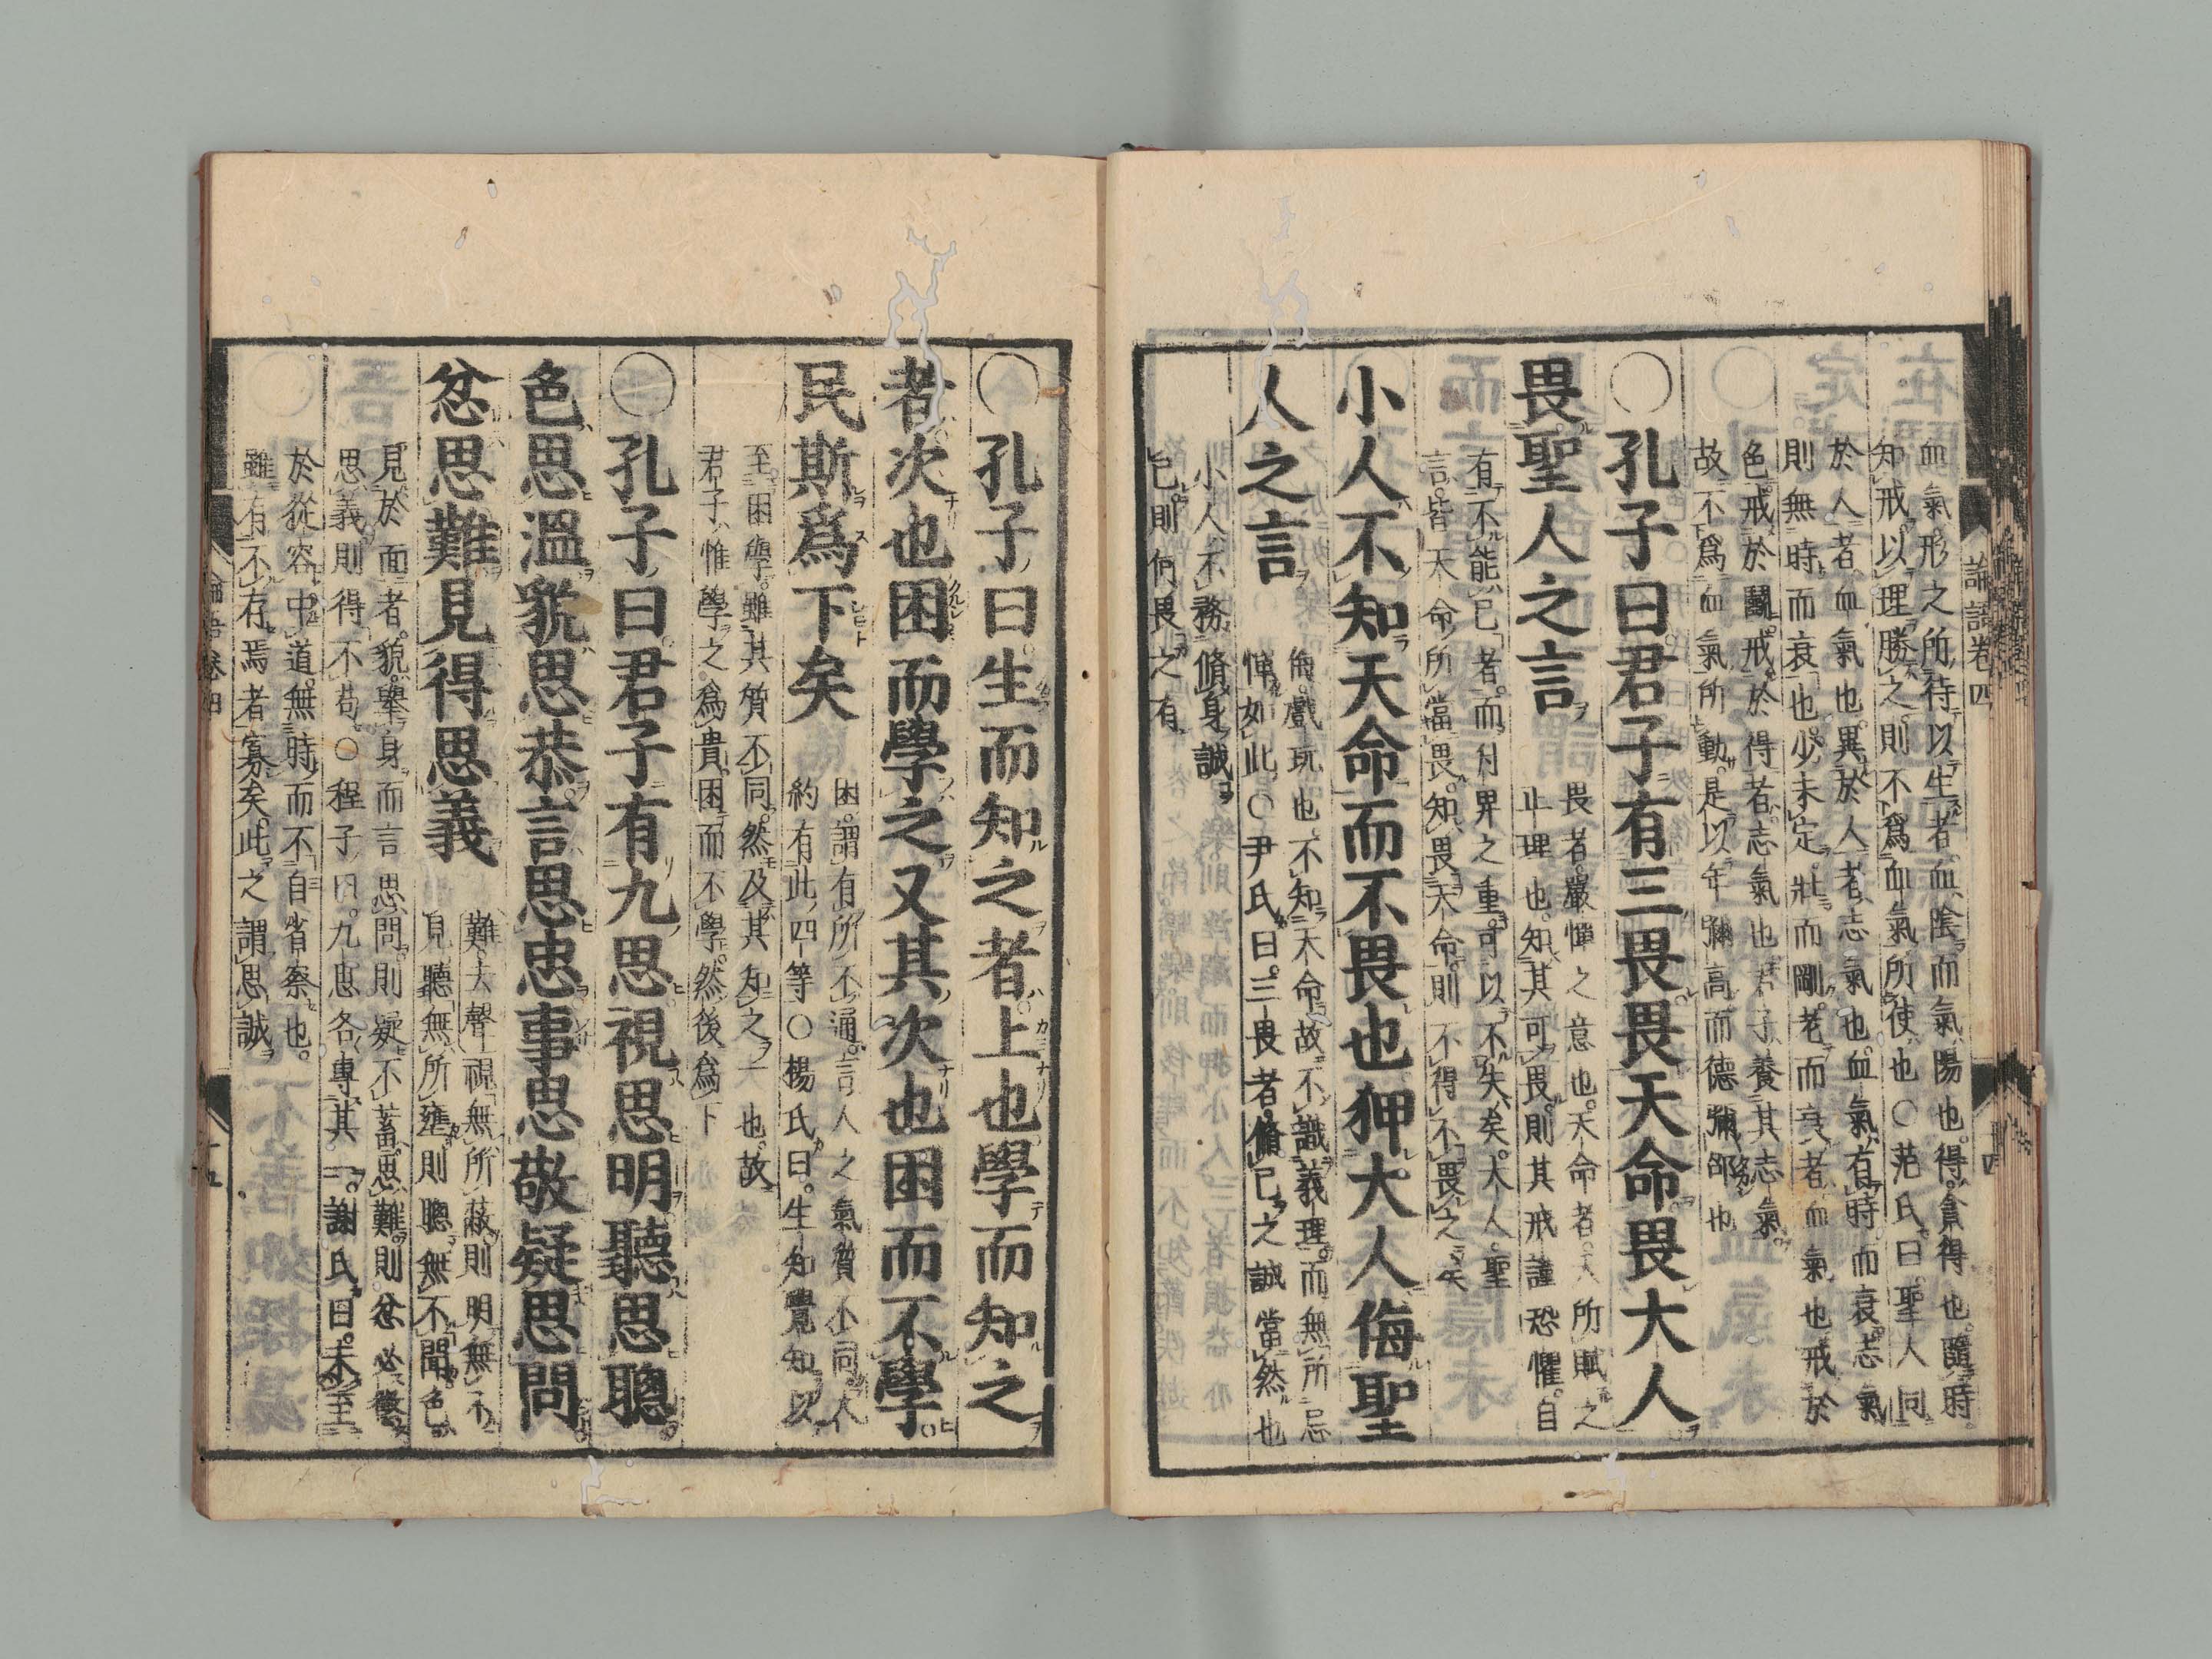 血氣形之所待以生者血陰而氣陽也得貪得也隨時
知戒以理勝之則不爲血氣所使也○范氏曰聖人同
於人者血氣也異於人者志氣也血氣有時而衰志氣
則無時而衰也少未定壯而剛老而衰者血氣也戒於
色戒於鬭戒於得者志氣也君子養其志氣
故不爲血氣所動是以年彌高而德彌卲也
○孔子曰君子有三畏畏天命畏大人
畏聖人之言
畏者嚴憚之意也天命者天所賦之
正理也知其可畏則其戒謹恐懼自
有不能已者而付畀之重可以不失矣大人聖
言皆天命所當畏知畏天命則不得不畏之矣
小人不知天命而不畏也狎大人侮聖
人之言
侮戲玩也不知天命故不識義理而無所忌
憚如此○尹氏曰三畏者脩己之誠當然也
小人不務脩身誠
己則何畏之有
論語卷四
○孔子曰生而知之者上也學而知之
者次也困而學之又其次也困而不學
民斯爲下矣
困謂有所不通言人之氣質不同大
約有此四等○楊氏曰生知覺知以
至困學雖其質不同然及其知之一也故
君子惟學之爲貴困而不學然後爲下
○孔子曰君子有九思視思明聽思聰
色思溫貌思恭言思忠事思敬疑思問
忿思難見得思義
難去聲視無所蔽則明無不
見聽無所壅則聰無不聞色
見於面者貌舉身而言思問則疑不蓄思難則忿必懲
思義則得不苟○程子曰九思各專其一謝氏曰未至
於從容中道無時而不自省察也
雖有不存焉者寡矣此之謂思誠
論語卷四
十五